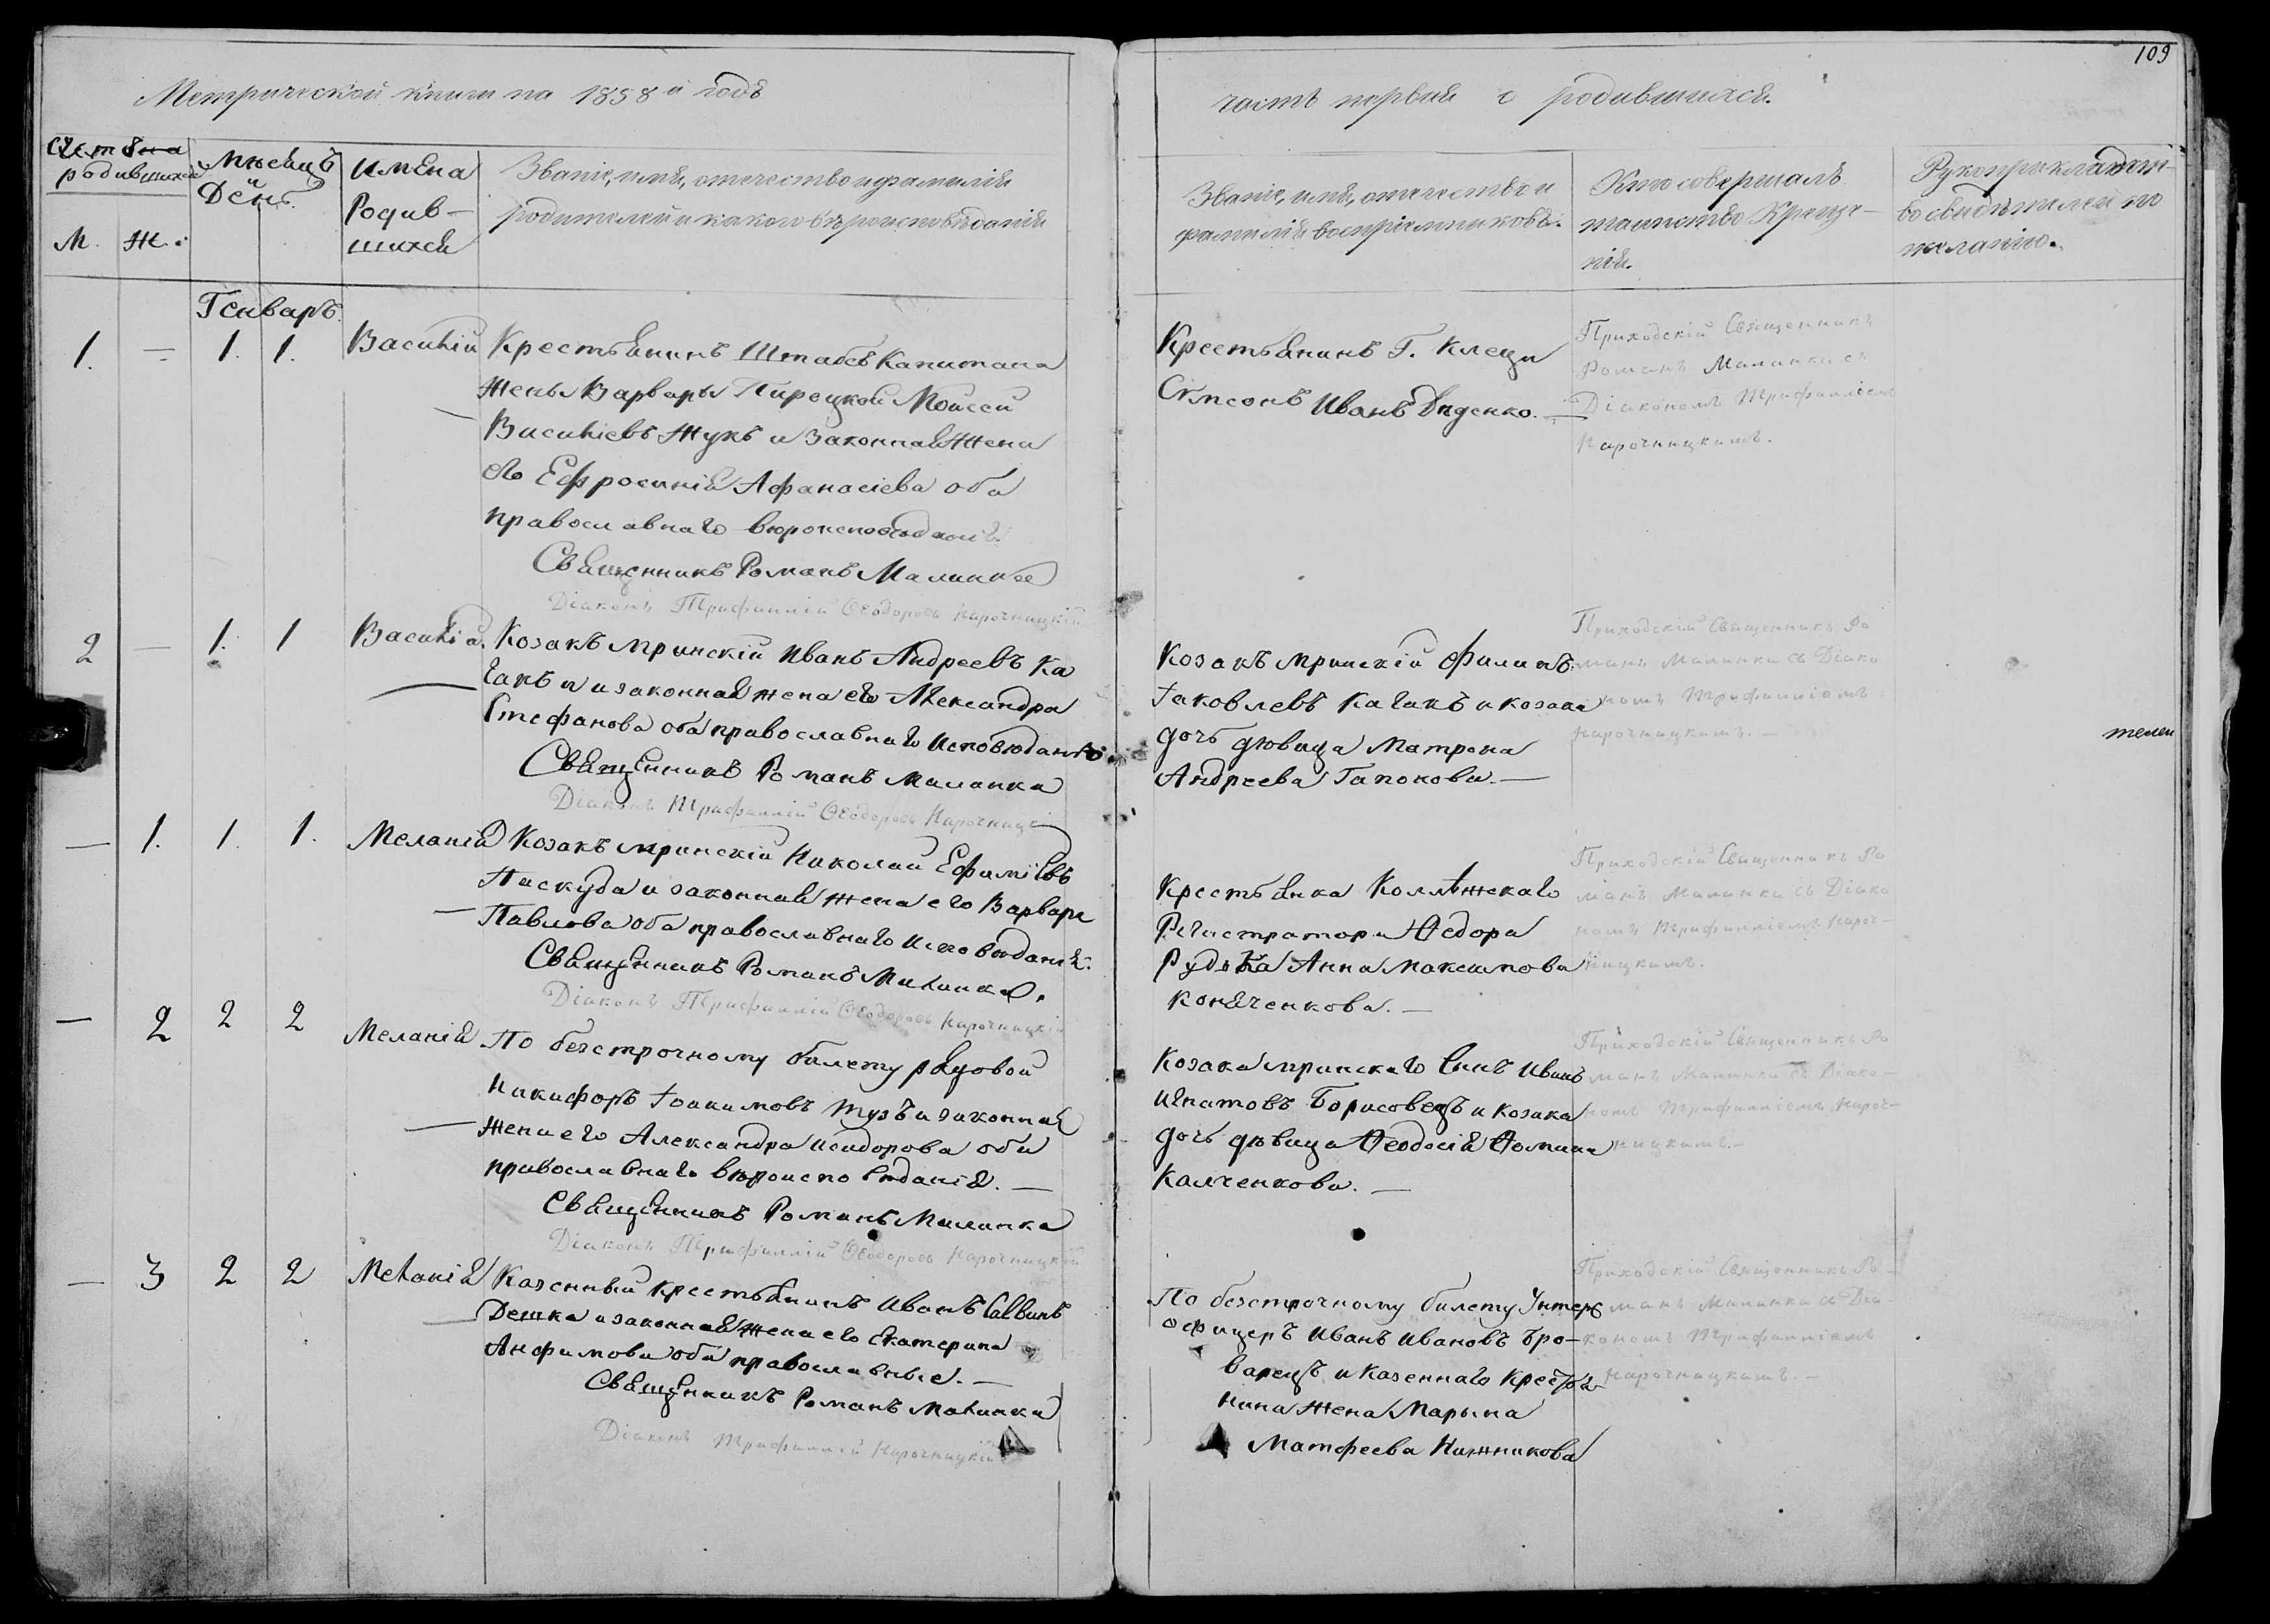 109
Метрической книги на 1858й годъ
часть первая о родившихся.
Счетъ
родившихся
М. Ж.
Мѣсяцъ
и
День.
Имена
Родив-
шихся
Званіе, имя, отечество и фамилія
родителей и какого вѣроисповѣданія
Званіе, имя, отечество и
фамилія воспріемниковъ.
Кто совершалъ
таинство Креще-
нія.
Рукоприкладст-
во свидѣтелей по
желанію.
Генваръ.
1. — 1. 1. Василій
Крестьянинъ Штабсъ Капитана
Жены Варвары Пироцкой Моисей
Василіевъ Жукъ и Законная Жена
его Ефросинія Афанасіева оба
православнаго вѣроисповѣданія.
Священникъ Романъ Малинка
Діаконъ Трифиллій Ѳеодоровъ Нарочницкій
Крестьянинъ Г. Клеци
Сѵмеонъ Ивановъ Диденко. —
Приходскій Священникъ
Романъ Малинка съ
Діакономъ Трифилліемъ
Нарочницкимъ.
2 — 1. 1 Василій.
Козакъ мринскій Иванъ Андреевъ Ка
гакъ и законная жена его Александра
Стефанова оба православнаго исповѣданія.
Священникъ Романъ Малинка
Діаконъ Трифиллій Ѳеодоровъ Нарочницкій
Козакъ мринскій Филипъ
Іаковлевъ Кагакъ и козака
дочь дѣвица Матрона
Андреева Гапонова. —
Приходскій Священникъ Ро
манъ Малинка съ Діако
номъ Трифилліемъ
Нарочницкимъ. —
телей
— 1. 1. 1. Меланія
Козакъ мринскій Николай Ефиміевъ
Паскуда и законная жена его Варвара
Павлова оба православнаго исповѣданія.
Священникъ Романъ Малинка.
Діаконъ Трифиллій Ѳеодоровъ Нарочницкій
Крестьянка Коллѣжскаго
Регистратора Ѳедора
Рудька Анна Максимова
Конѧченкова. —
Приходскій Священникъ Ро
манъ Малинка съ Діако
номъ Трифилліемъ Нароч-
ницкимъ.
— 2 2 2 Меланія
По безсрочному билету рядовой
Никифоръ Іоакимовъ Тузъ и законная
жена его Александра Исидорова оба
православнаго вѣроисповѣданія. —
Священникъ Романъ Малинка
Діаконъ Трифиллій Ѳеодоровъ Нарочницкій
Козака мринскаго сынъ Иванъ
Игнатовъ Борисовецъ и козака
дочь дѣвица Ѳеодосія Ѳомина
Калченкова. —
Приходскій Священникъ Ро
манъ Малинка съ Діако-
номъ Трифилліемъ Нароч-
ницкимъ. —
— 3 2 2 Меланія
Казенный крестьянинъ Иванъ Саввинъ
Дешка и законная жена его Екатерина
Анфимова оба православные. —
Священникъ Романъ Малинка
Діаконъ Трифиллій Нарочницкій
По безсрочному билету Унтеръ
офицеръ Иванъ Ивановъ Бро-
варецъ и казеннаго крестья
нина жена Марына
Матфеева Нижникова
Приходскій Священникъ Ро-
манъ Малинка съ Діа
кономъ Трифилліемъ
Нарочницкимъ. —